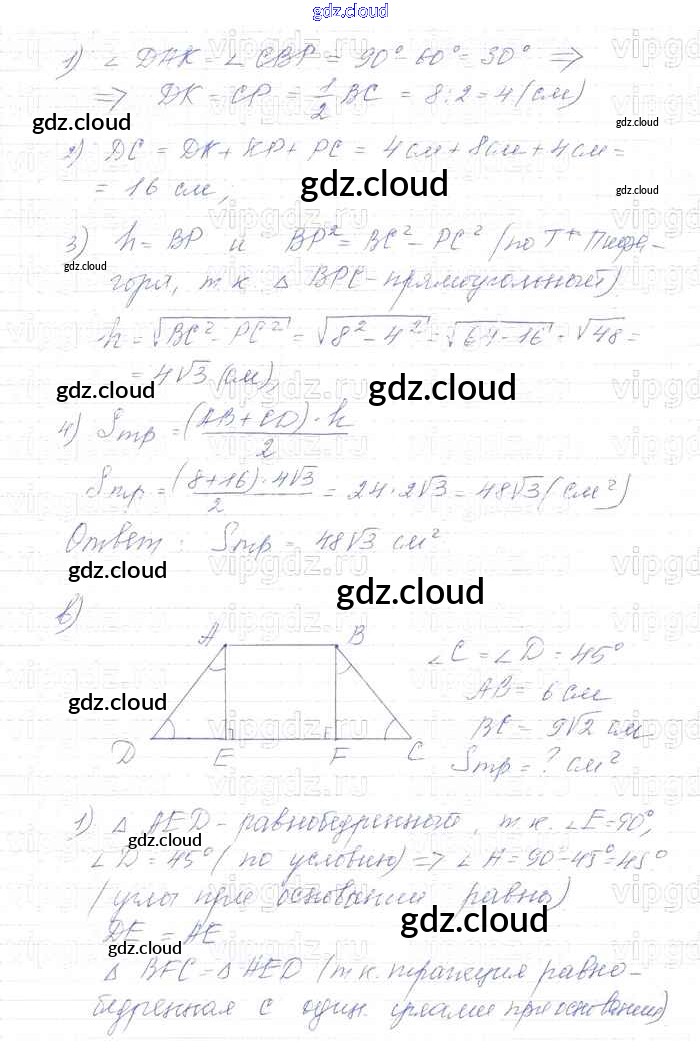 gdz.cloud
1) ∠DAK = ∠CBP = 90° - 60° = 30° ⇒
⇒ DK = CP = 1/2 BC = 8:2 = 4 (см)
gdz.cloud
gdz.cloud
2) DC = DK + KP + PC = 4 см + 8 см + 4 см =
= 16 см;
gdz.cloud
gdz.cloud
3) h = BP и BP² = BC² - PC² (по Т* Пифа-
gdz.cloud
гора, т.к. △ BPC - прямоугольный)
h = √BC² - PC² = √8² - 4² = √64 - 16 = √48 =
= 4√3 (см),
gdz.cloud
gdz.cloud
4) Sтр = (AB + CD) · h / 2
Sтр = (8+16) · 4√3 / 2 = 24 · 2√3 = 48√3 (см²)
Ответ: Sтр = 48√3 см²
gdz.cloud
gdz.cloud
в)
A B
∠C = ∠D = 45°
AB = 6 см
gdz.cloud
BC = 9√2 см
D E F C
Sтр = ? см²
1) △ AED - равнобедренный, т.к. ∠E = 90°,
gdz.cloud
∠D = 45° (по условию) ⇒ ∠A = 90° - 45° = 45°
(углы при основании равны)
gdz.cloud
DE = AE
gdz.cloud
△ BFC = △ AED (т.к. трапеция равно-
бедренная с один. углами при основании)